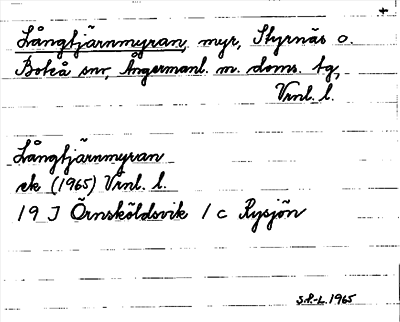 Långtjärnmyran, myr, Styrnäs o.
Boteå snr, Ångermanl. m. doms. tg,
Vrnl. l.
Långtjärnmyran
ek (1965) Vrnl. l.
19 J Örnsköldsvik 1 c Rysjön
S.P.-L. 1965